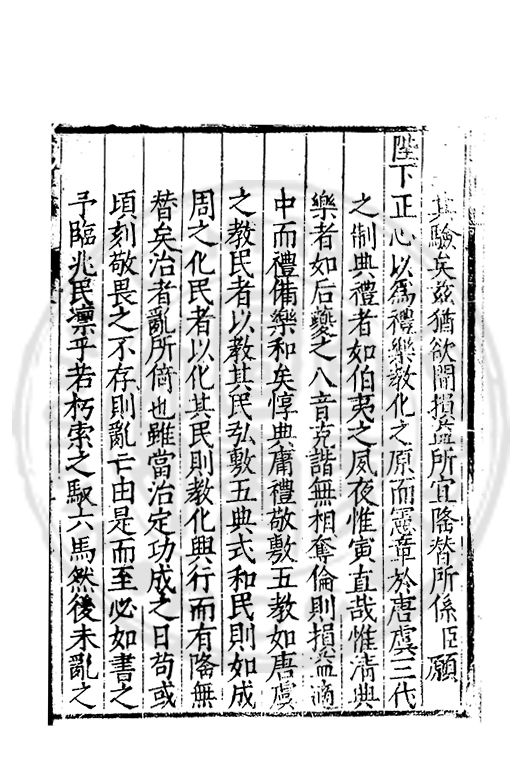 其驗矣兹猶欲聞損益所宜隆替所係臣願
陛下正心以爲禮樂教化之原而憲章於唐虞三代
之制典禮者如伯夷之夙夜惟寅直哉惟清典
樂者如后夔之八音克諧無相奪倫則損益適
中而禮備樂和矣惇典庸禮敬敷五教如唐虞
之教民者以教其民弘敷五典式和民則如成
周之化民者以化其民則教化興行而有隆無
替矣治者亂所倚也雖當治定功成之日苟或
頃刻敬畏之不存則亂亡由是而至必如書之
予臨兆民懍乎若朽索之馭六馬然後未亂之